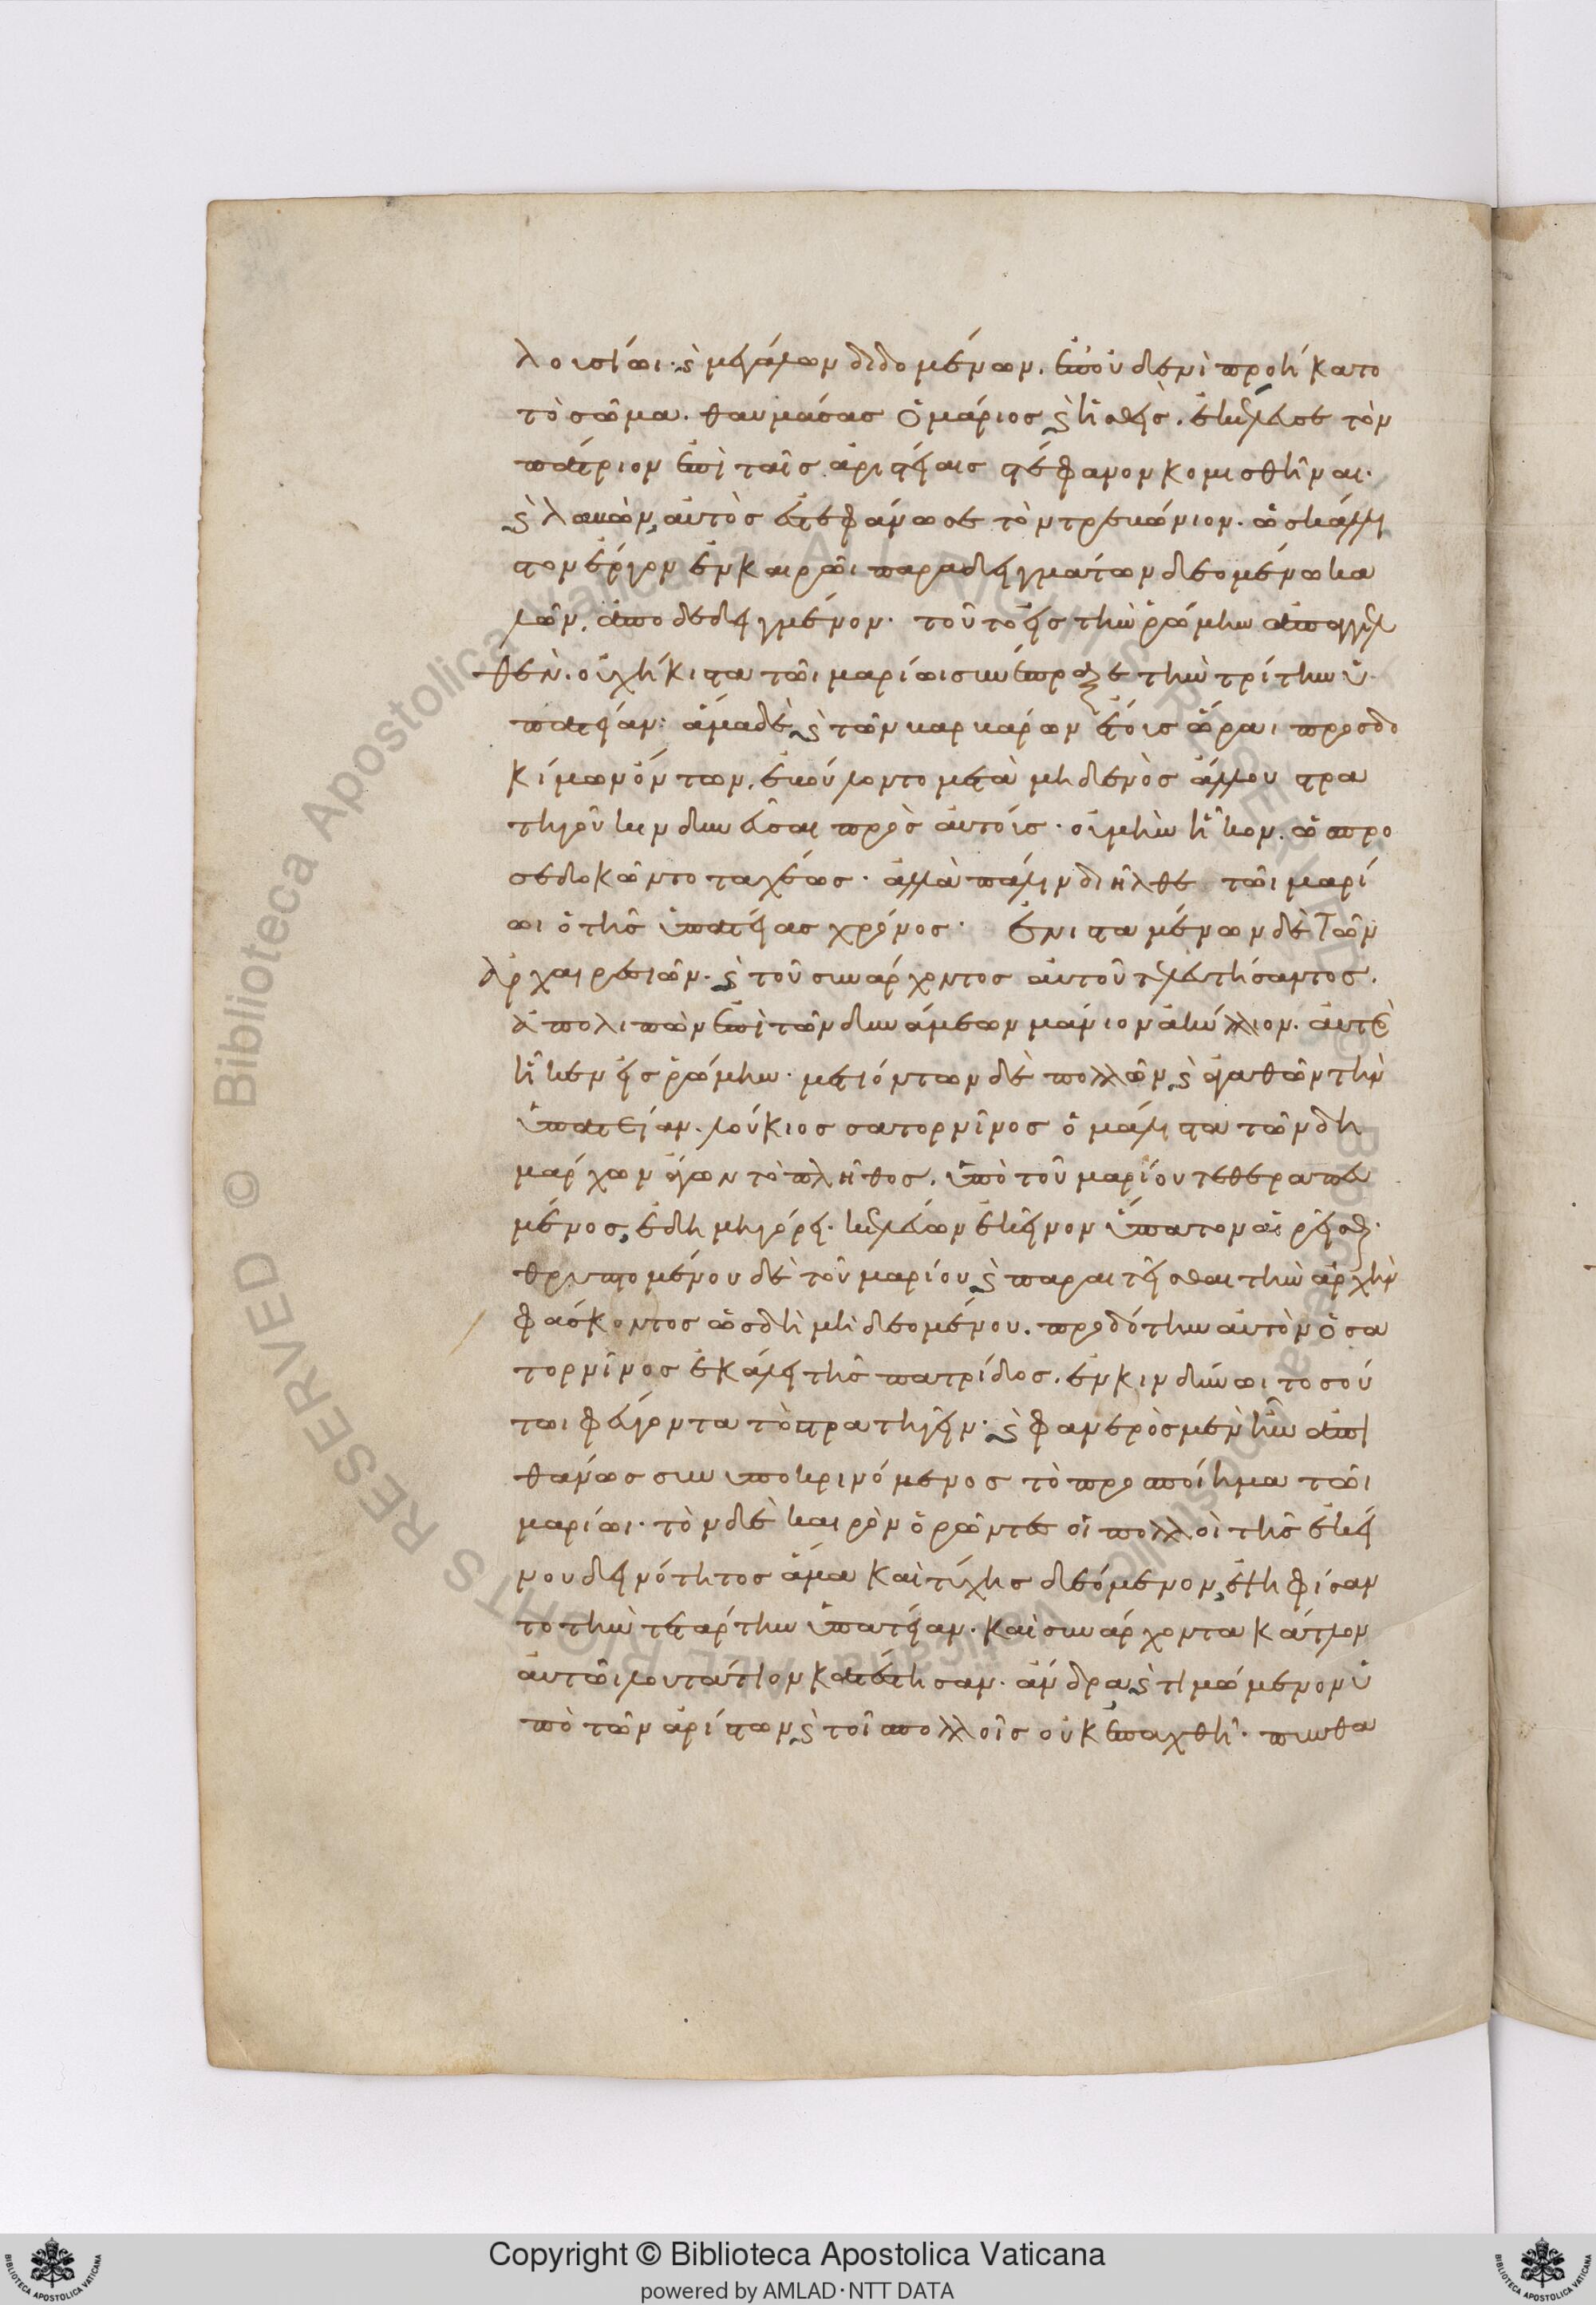 λουσίωι· καὶ μεγάλων διδομένων. ἐπ' οὐδενὶ προήκατο
τὸ σῶμα. θαυμάσας ὁ μάριος καὶ ἡσθεὶς. ἐκέλευσε τὸν
πάτριον ἐπὶ ταῖς ἀριστείαις στέφανον κομισθῆναι.
καὶ λαβὼν, αὐτὸς ἐστεφάνωσε τὸν τρεβώνιον. ὡς κάλλι
στον ἔργον ἐν καιρῶι παραδειγμάτων δεομένω κα
λῶν, ἀποδεδειγμένον. τοῦτο εἰς τὴν ῥώμην ἀπαγγελ
θὲν. οὐχ ἥκιστα τῶι μαρίωι συνέπραξε τὴν τρίτην ὑ
πατείαν: ἅμα δὲ καὶ τῶν βαρβάρων ἔτους ὥραι προσδο
κίμων ὄντων. ἐβούλοντο μετὰ μηδενὸς ἄλλου στρα
τηγοῦ κινδυνεῦσαι πρὸς αὐτούς. οὐ μὴν ἧκον. ὡς προ
σεδοκῶντο ταχέως. ἀλλὰ πάλιν διῆλθε τῶι μαρί
ωι ὁ τῆς ὑπατείας χρόνος. Ἐνισταμένων δὲ τῶν
ἀρχαιρεσιῶν. καὶ τοῦ συνάρχοντος αὐτοῦ τελευτήσαντος.
ἀπολιπὼν ἐπὶ τῶν δυνάμεων μάνιον ἀκύλλιον. αὐτὸς
ἧκεν εἰς ῥώμην. μετιόντων δὲ πολλῶν καὶ ἀγαθῶν τὴν
ὑπατείαν. λούκιος σατορνῖνος ὁ μάλιστα τῶν δη
μάρχων ἄγων τὸ πλῆθος. ὑπὸ τοῦ μαρίου τεθεραπευ
μένος, ἐδημηγόρει. κελεύων ἐκεῖνον ὕπατον αἱρεῖσθαι.
θρυπτομένου δὲ τοῦ μαρίου καὶ παραιτεῖσθαι τὴν ἀρχὴν
φάσκοντος ὡς δὴ μὴ δεομένου. προδότην αὐτὸν ὁ σα
τορνῖνος ἐκάλει τῆς πατρίδος. ἐν κινδύνωι τοσού
τωι φεύγοντα τὸ στρατηγεῖν. καὶ φανερὸς μὲν ἦν ἀπι
θάνως συνυποκρινόμενος τὸ προσποίημα τῶι
μαρίωι. τὸν δὲ καιρὸν ὁρῶντες οἱ πολλοὶ τῆς ἐκεί
νου δεινότητος ἅμα καὶ τύχης δεόμενον, ἐψηφίσαν
το τὴν τετάρτην ὑπατείαν. καὶ συνάρχοντα κάτλον
αὐτῶι λουτάτιον κατέστησαν. ἄνδρα καὶ τιμώμενον ὑ
πὸ τῶν ἀρίστων καὶ τοῖς πολλοῖς οὐκ ἐπαχθῆ. πυνθα
Copyright © Biblioteca Apostolica Vaticana
powered by AMLAD·NTT DATA